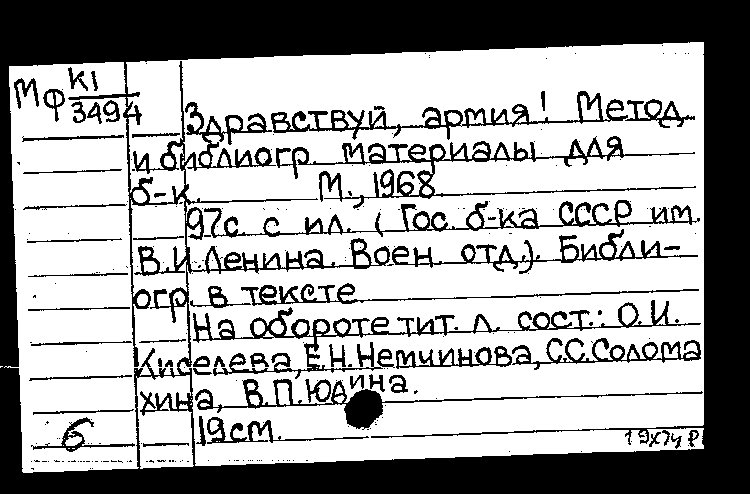 Мф К1
3494
Здравствуй, армия! Метод.
и библиогр. материалы для
б-к. М., 1968
97с. с ил. (Гос. б-ка СССР им.
В.И.Ленина. Воен. отд.). Библи-
огр. в тексте
На обороте тит. л. сост.: О.И.
Киселева, Е.Н.Немчинова, С.С.Солома
хина, В.П.Юдина.
19см.
б